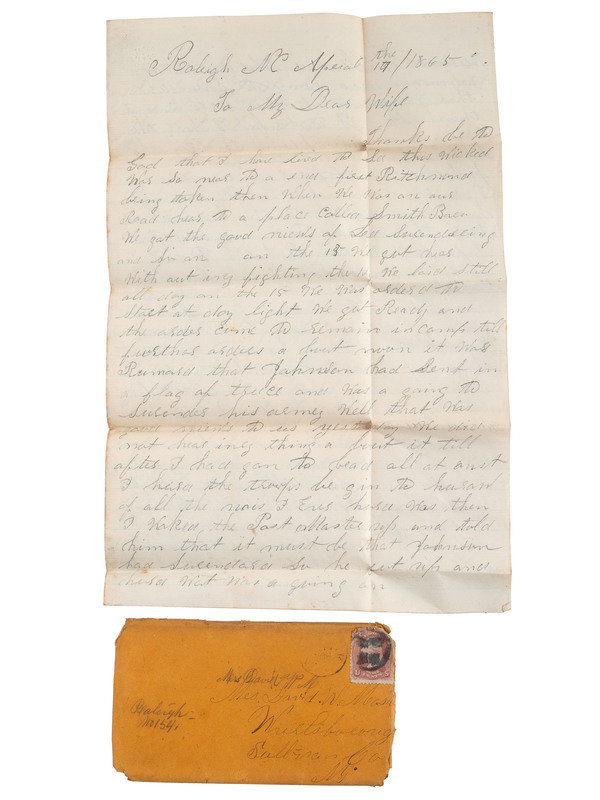 Raleigh NC Apeial the 17/1865
To My Dear Wife
Thanks be to
God that I had livd to Se this Wicked
War So near to a end first Ritchmond
being taken then When We Was on our
Road hear to a place Called Smith
We got the good niews of Led Surendering
and So on on the 13 We got hear
With out ing fighting the 14 We laid Still
all day on the 15 We Was orderd to
Start at day light We got Ready and
the order Come to remain in camp till
further orders a bout noon it Was
Rumard that Johnson had Sent in
a flag of truce and Was a going to
Surender his armey Well that Was
good niews to us yesterday We did
not hear ing thing a bout it till
after I had gon to bead all at onst
I heard the troops be gin to
of all the nois I Ever heard Was then
I Waked the Post Master up and told
him that it must be that Johnson
had Surendard So he up and
heard Wat Was a going on
Mrs David
Mrs. David W.
Sullivan Co
NY
Raleigh
No 154